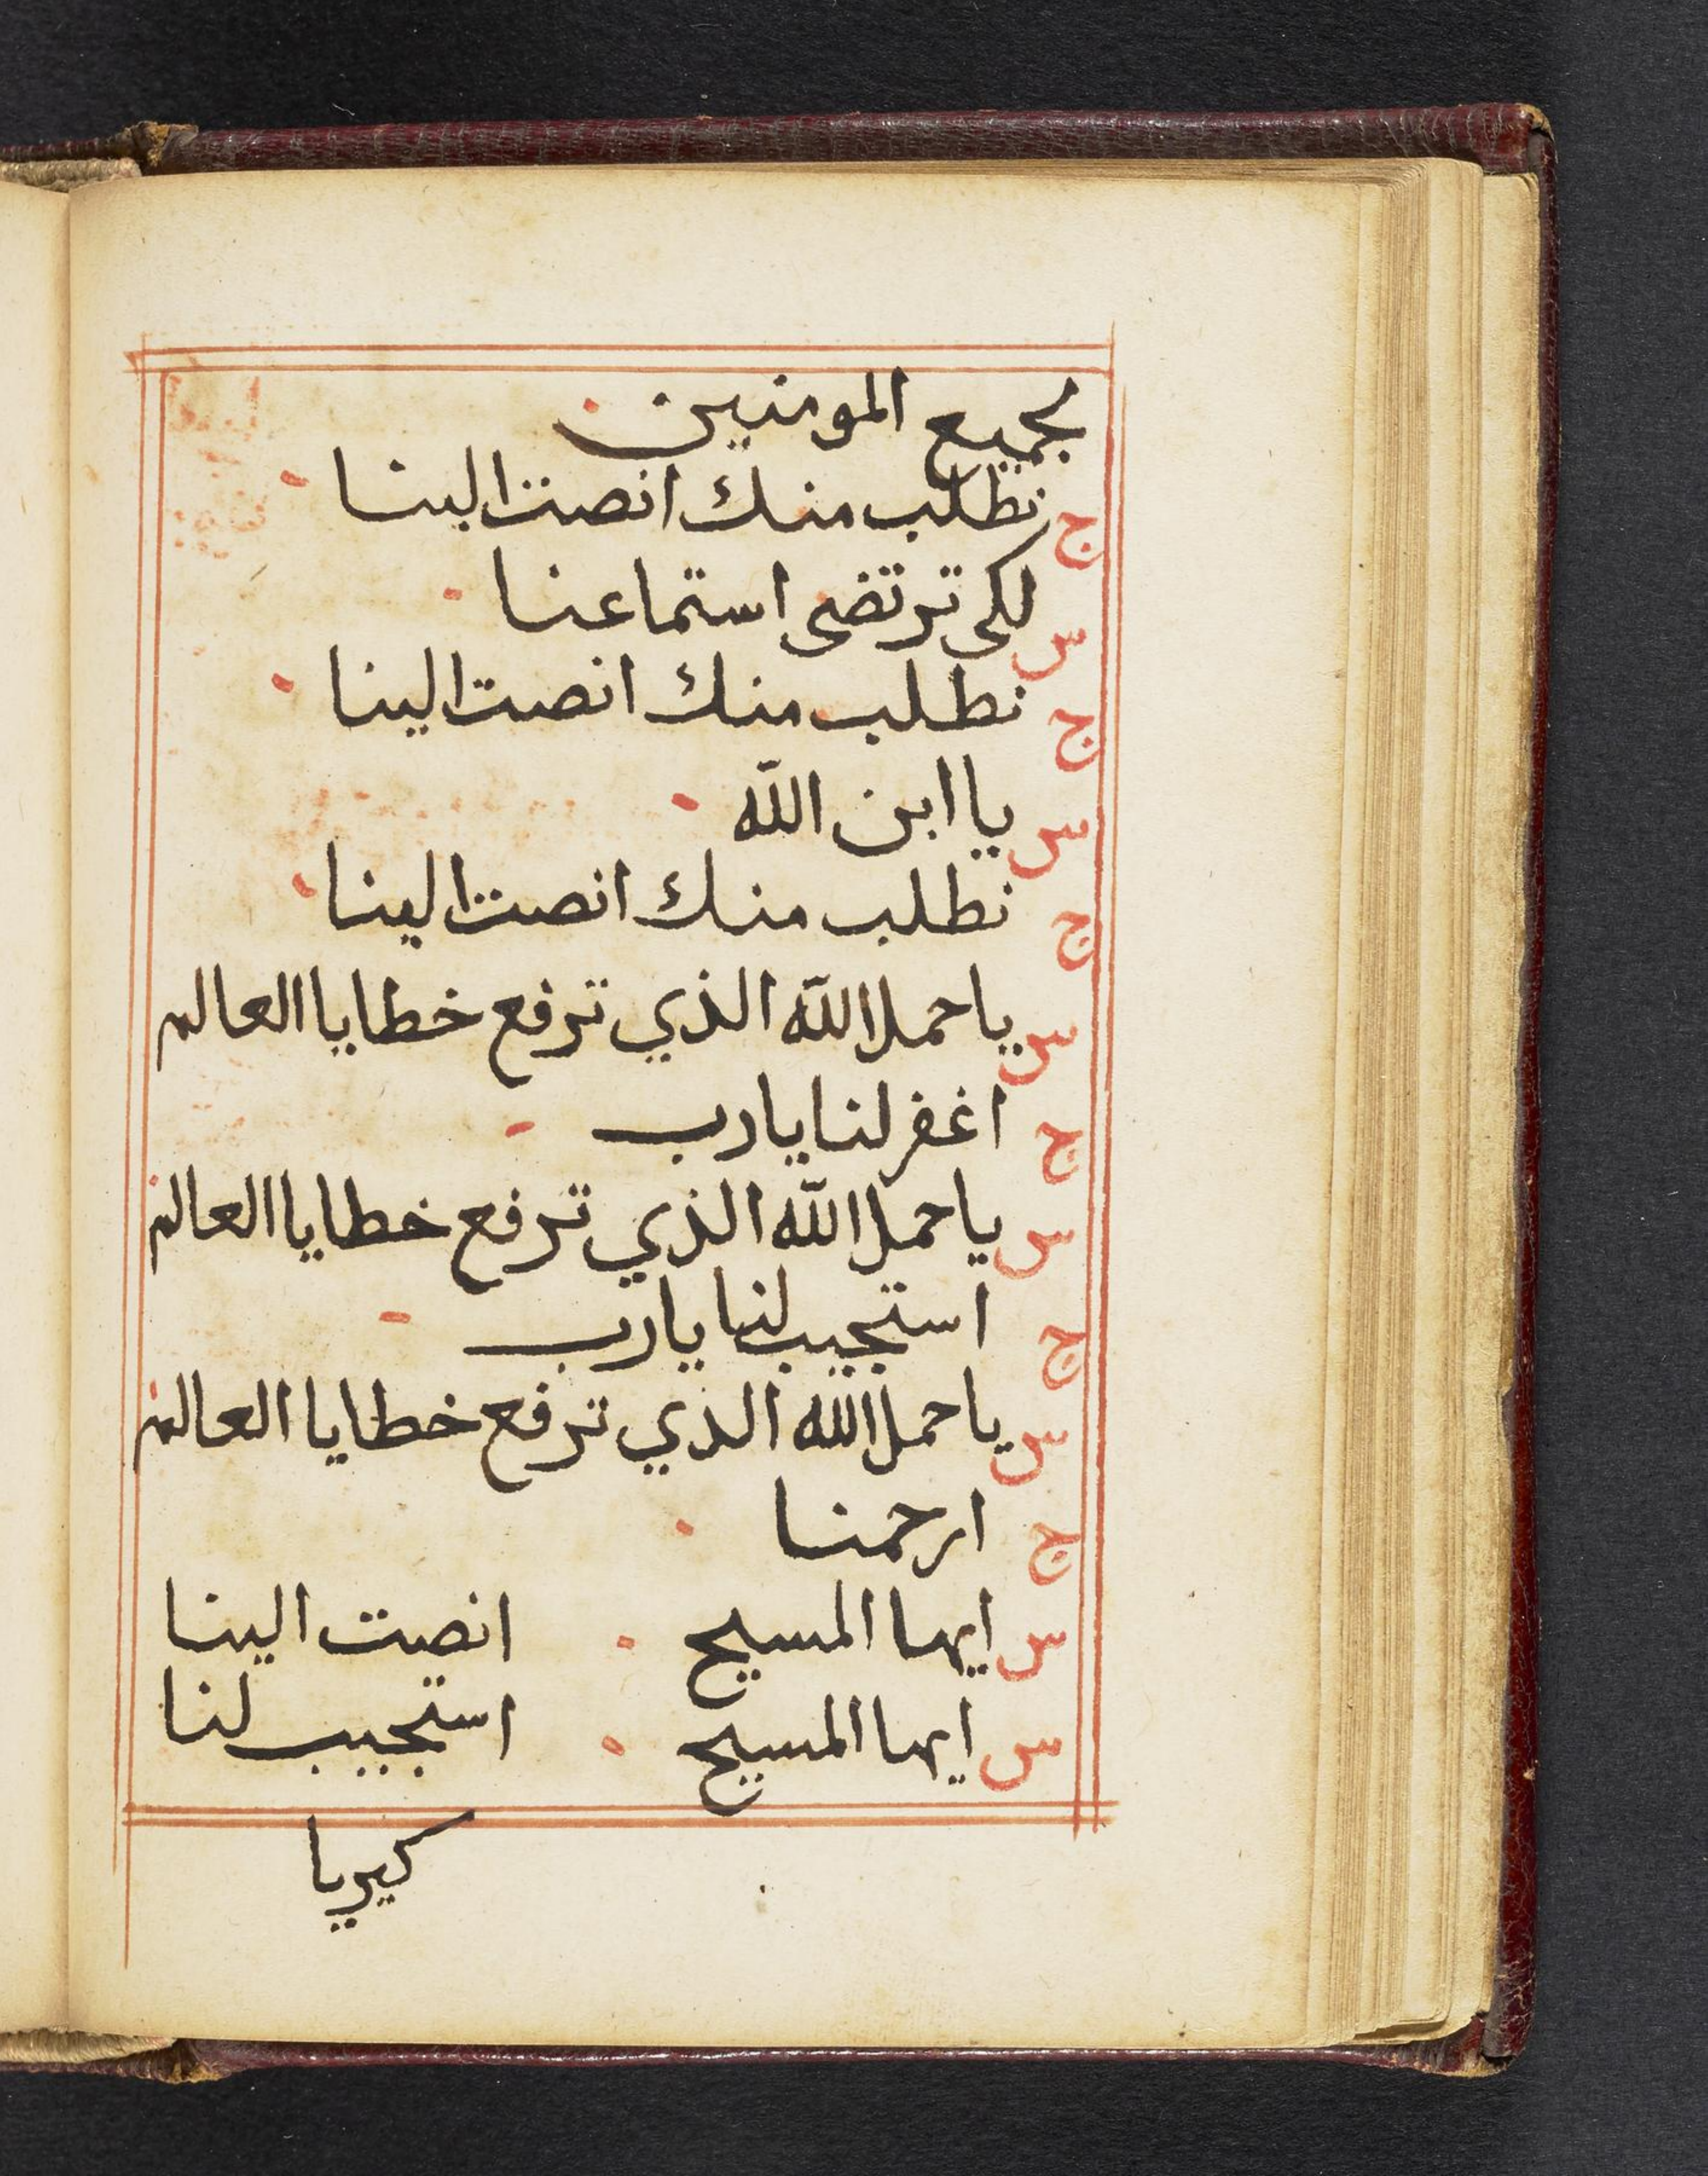 لجميع المومنين
ج نطلب منك انصت الينا
س لكى ترتضى استماعنا
ج نطلب منك انصت الينا
س يا ابن الله
ج نطلب منك انصت الينا
س يا حمل الله الذي ترفع خطايا العالم
ج اغفر لنا يا رب
س يا حمل الله الذي ترفع خطايا العالم
ج استجيب لنا يا رب
س يا حمل الله الذي ترفع خطايا العالم
ج ارحمنا
س ايها المسيح انصت الينا
س ايها المسيح استجيب لنا
كيريا